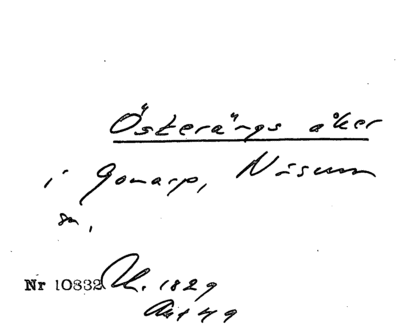 Österängs åker
i Gonarp, Näsum
sn.
Nr 10832 Uh. 1829
Akt 49